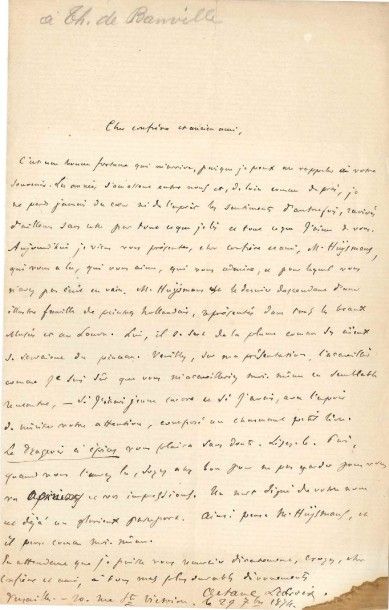 à Th. de Banville
Cher confrère et ancien ami,
C'est une bonne fortune qui m'arrive, puisque je peux me rappeler à votre
souvenir. Les années s'amassent entre nous et, de loin comme de près, je
ne perds jamais du cœur ni de l'esprit les sentiments d'autrefois, ravivés
d'ailleurs sans cesse par tout ce que je lis et tout ce que j'aime de vous.
Aujourd'hui je viens vous présenter, cher confrère et ami, M. Huÿsmans
qui vous a lu, qui vous aime, qui vous admire, et pour lequel vous
n'avez pas écrit en vain. M. Huÿsmans est le dernier descendant d'une
illustre famille de peintres hollandais, représentés dans tous les beaux
Musées et au Louvre. Lui, il se sert de la plume comme ses aïeux
se servaient du pinceau. Veuillez, sur ma présentation, l'accueillir
comme je suis sûr que vous m'accueilleriez moi-même en semblable
rencontre, — si j'étais jeune encore et si j'avais, avec l'espoir
de mériter votre attention, composé un charmant petit livre.
Le Drageoir à épices vous plaira sans doute. Lisez-le. Puis,
quand vous l'aurez lu, soyez assez bon pour ne pas garder pour vous
vos opinions et vos impressions. Un mot signé de votre nom
est déjà un glorieux passeport. Ainsi pense M. Huÿsmans, et
il pense comme moi-même.
En attendant que je puisse vous nouveau croyez, cher
confrère et ami, à tous mes plus durables dévouements
Octave Lacroix.
Versailles — 20. rue St Victoire. le 29 7bre 1874.